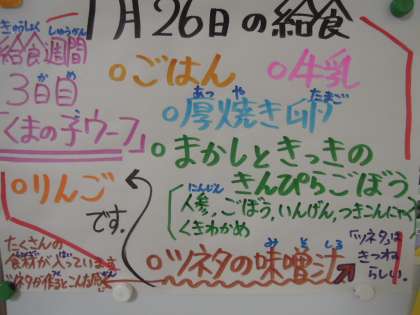 1月26日の給食
給食週間
3日目
「くまの子ウーフ」
○ごはん
○牛乳
○厚焼き卵
○まかしときっきの
きんぴらごぼう
人参、ごぼう、いんげん、つきこんにゃく
くきわかめ
○りんご
です。
○ツネタの味噌汁
たくさんの
食材が入っています
ツネタが作るとこんな感じ
「ツネタ」は
きつね
らしい。